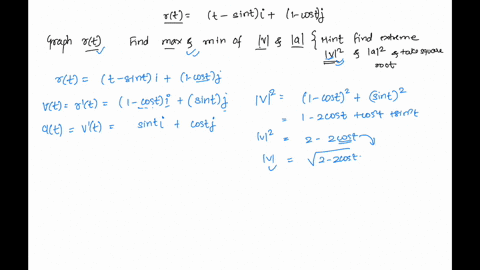 r(t) = (t - sint)i + (1-cost)j
Graph r(t) Find max & min of |v| & |a| { Hint find extreme
|v|² & |a|² & take square
root
r(t) = (t-sint)i + (1-cost)j
v(t) = r'(t) = (1-cost)i + (sint)j
a(t) = v'(t) = sint i + cost j
|v|² = (1-cost)² + (sint)²
= 1 - 2cost + cos²t + sin²t
|v|² = 2 - 2cost
|v| = √2-2cost